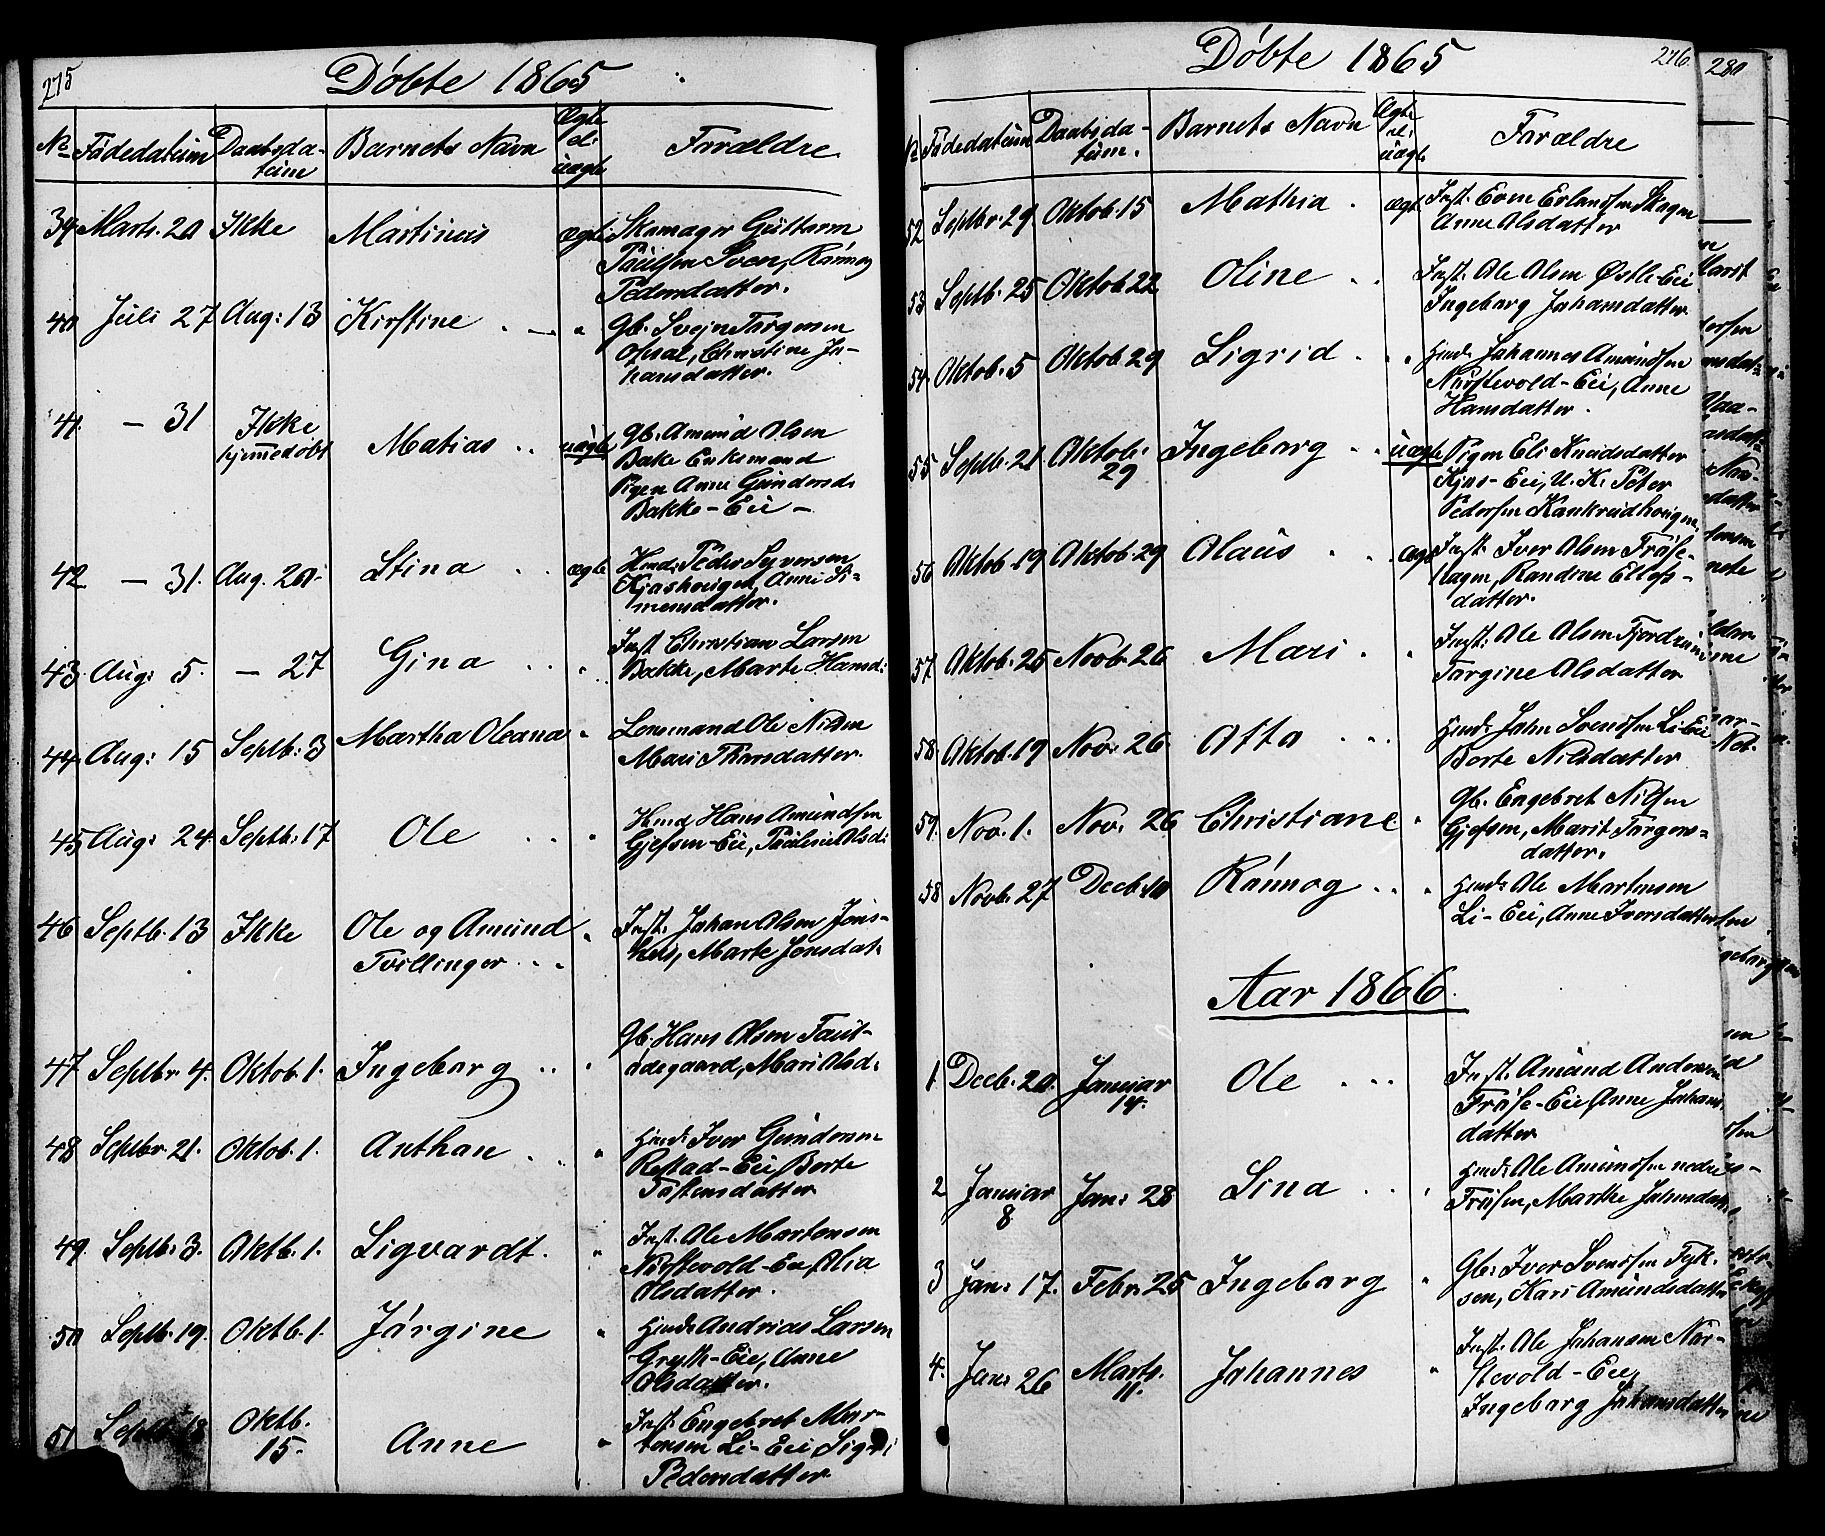 275
Döbte 1865
No Födedatum Daabsda- Barnets Navn Ægte Forældre
tum el:
uægte
39 Marts. 20 Ikke Martinus ægte Skomager Guttorm
Paulsen Sven, Rönnog
Pedersdatter.
40 Juli 27 Aug: 13 Kirstine . — " Gb. Svejn Torgersen
Opsal, Christine Jo-
hansdatter.
41. — 31 Ikke Matias .. uægte Gb. Amund Olsen
hjemmedöbt Bake Enkemand
Pigen Anne Gundersd:
Bakke-Eie —
42 — 31. Aug. 20. Stina .. ægte Hmd: Peder Syversen
Kjoshougen, Anne Si-
mensdatter.
43. Aug: 5. — 27 Gina ... " Inst. Christian Larsen
Bakke, Marte Hansd:
44. Aug: 15 Septb: 3 Martha Oleana " Lensmand Ole Nilsen
Mari Thorsdatter.
45 Aug: 24. Septb: 17 Ole .. " Hmd. Hans Amundsen
Gjefsen-Eie, Pauline Olsd:
46 Septb. 13 Ikke Ole og Amund " Inst. Johan Olsen
Tvillinger .. Marte Jonsdat
47 Septbr 4. Oktob. 1. Ingeborg .. " Gb. Hans Olsen
ödegaard, Mari Olsd:
48 Septbr. 21. Oktob. 1. Anthon .. " Hmd: Iver Gundersen
Eie, Borte
Tostensdatter
49. Septb: 3. Oktb. 1. Sigvardt. " Inst. Ole Mortensen
Nöstevold-Eie, Olia
Olsdatter.
50 Septb. 19. Oktb. 1. Jörgine " Hmd: Andrias Larsen
Eie, Anne
Olsdatter.
51 Septb. 18 Oktb. Anne " Inst. Engebret Mor-
15. tensen Li-Eie, Sigri
Pedersdatter
Döbte 1865 276.
No Födedatum Daabsda- Barnets Navn Ægte Forældre
tum. el:
uægte
52 Septbr. 29 Oktob. 15 Mathia . ægte Inst. Even Erlandsen Skogen
Anne Olsdatter
53 Septb. 25 Oktob. 22 Oline .. Inst. Ole Olsen Östli-Eie
Ingeborg Johansdatter
54. Oktob. 5 Oktob. 29 Sigrid .. " Hmd: Johannes Amundsen
Nöstevold-Eie, Anne
Hansdatter.
55 Septb. 21. Oktob. Ingeborg .. uægte Pigen Eli Knudsdatter
29 Kjos-Eie, U. K. Peter
Pedersen
56 Oktob. 19 Oktob. 29 Olaus .. ægte Inst. Iver Olsen Fröse-
hagen, Randine Ellefs-
datter.
57. Oktob. 25 Novb. 26 Mari . " Inst. Ole Olsen
Torgine Olsdatter
58. Oktob. 19 Nov. 26. Otto ... Hmd: John Svendsen Li-Eie
Borte Nilsdatter
59. Nov. 1. Nov. 26 Christiane " Gb. Engebret Nilsen
Gjefsen, Marit Torgers-
datter.
58 Novb. 27 Decb. 10 Rönnog .. " Hmd: Ole Mortensen
Li-Eie, Anne Iversdatter
Aar 1866.
1. Decb. 20. Januar Ole ... Inst. Amund Andersen
14. Fröse-Eie, Anne Johans
datter
2 Januar Jan: 28 Sina .. " Hmd: Ole Amundsen nedre
8 Frösen, Marthe
3 Jan: 17. Febr. 25 Ingeborg " Gb: Iver Svendsen
sen, Kari Amundsdatter
4. Jan: 26 Marts. Johannes " Inst. Ole Johansen Nö-
11. stevold-Eie,
Ingeborg Johansdatter
280